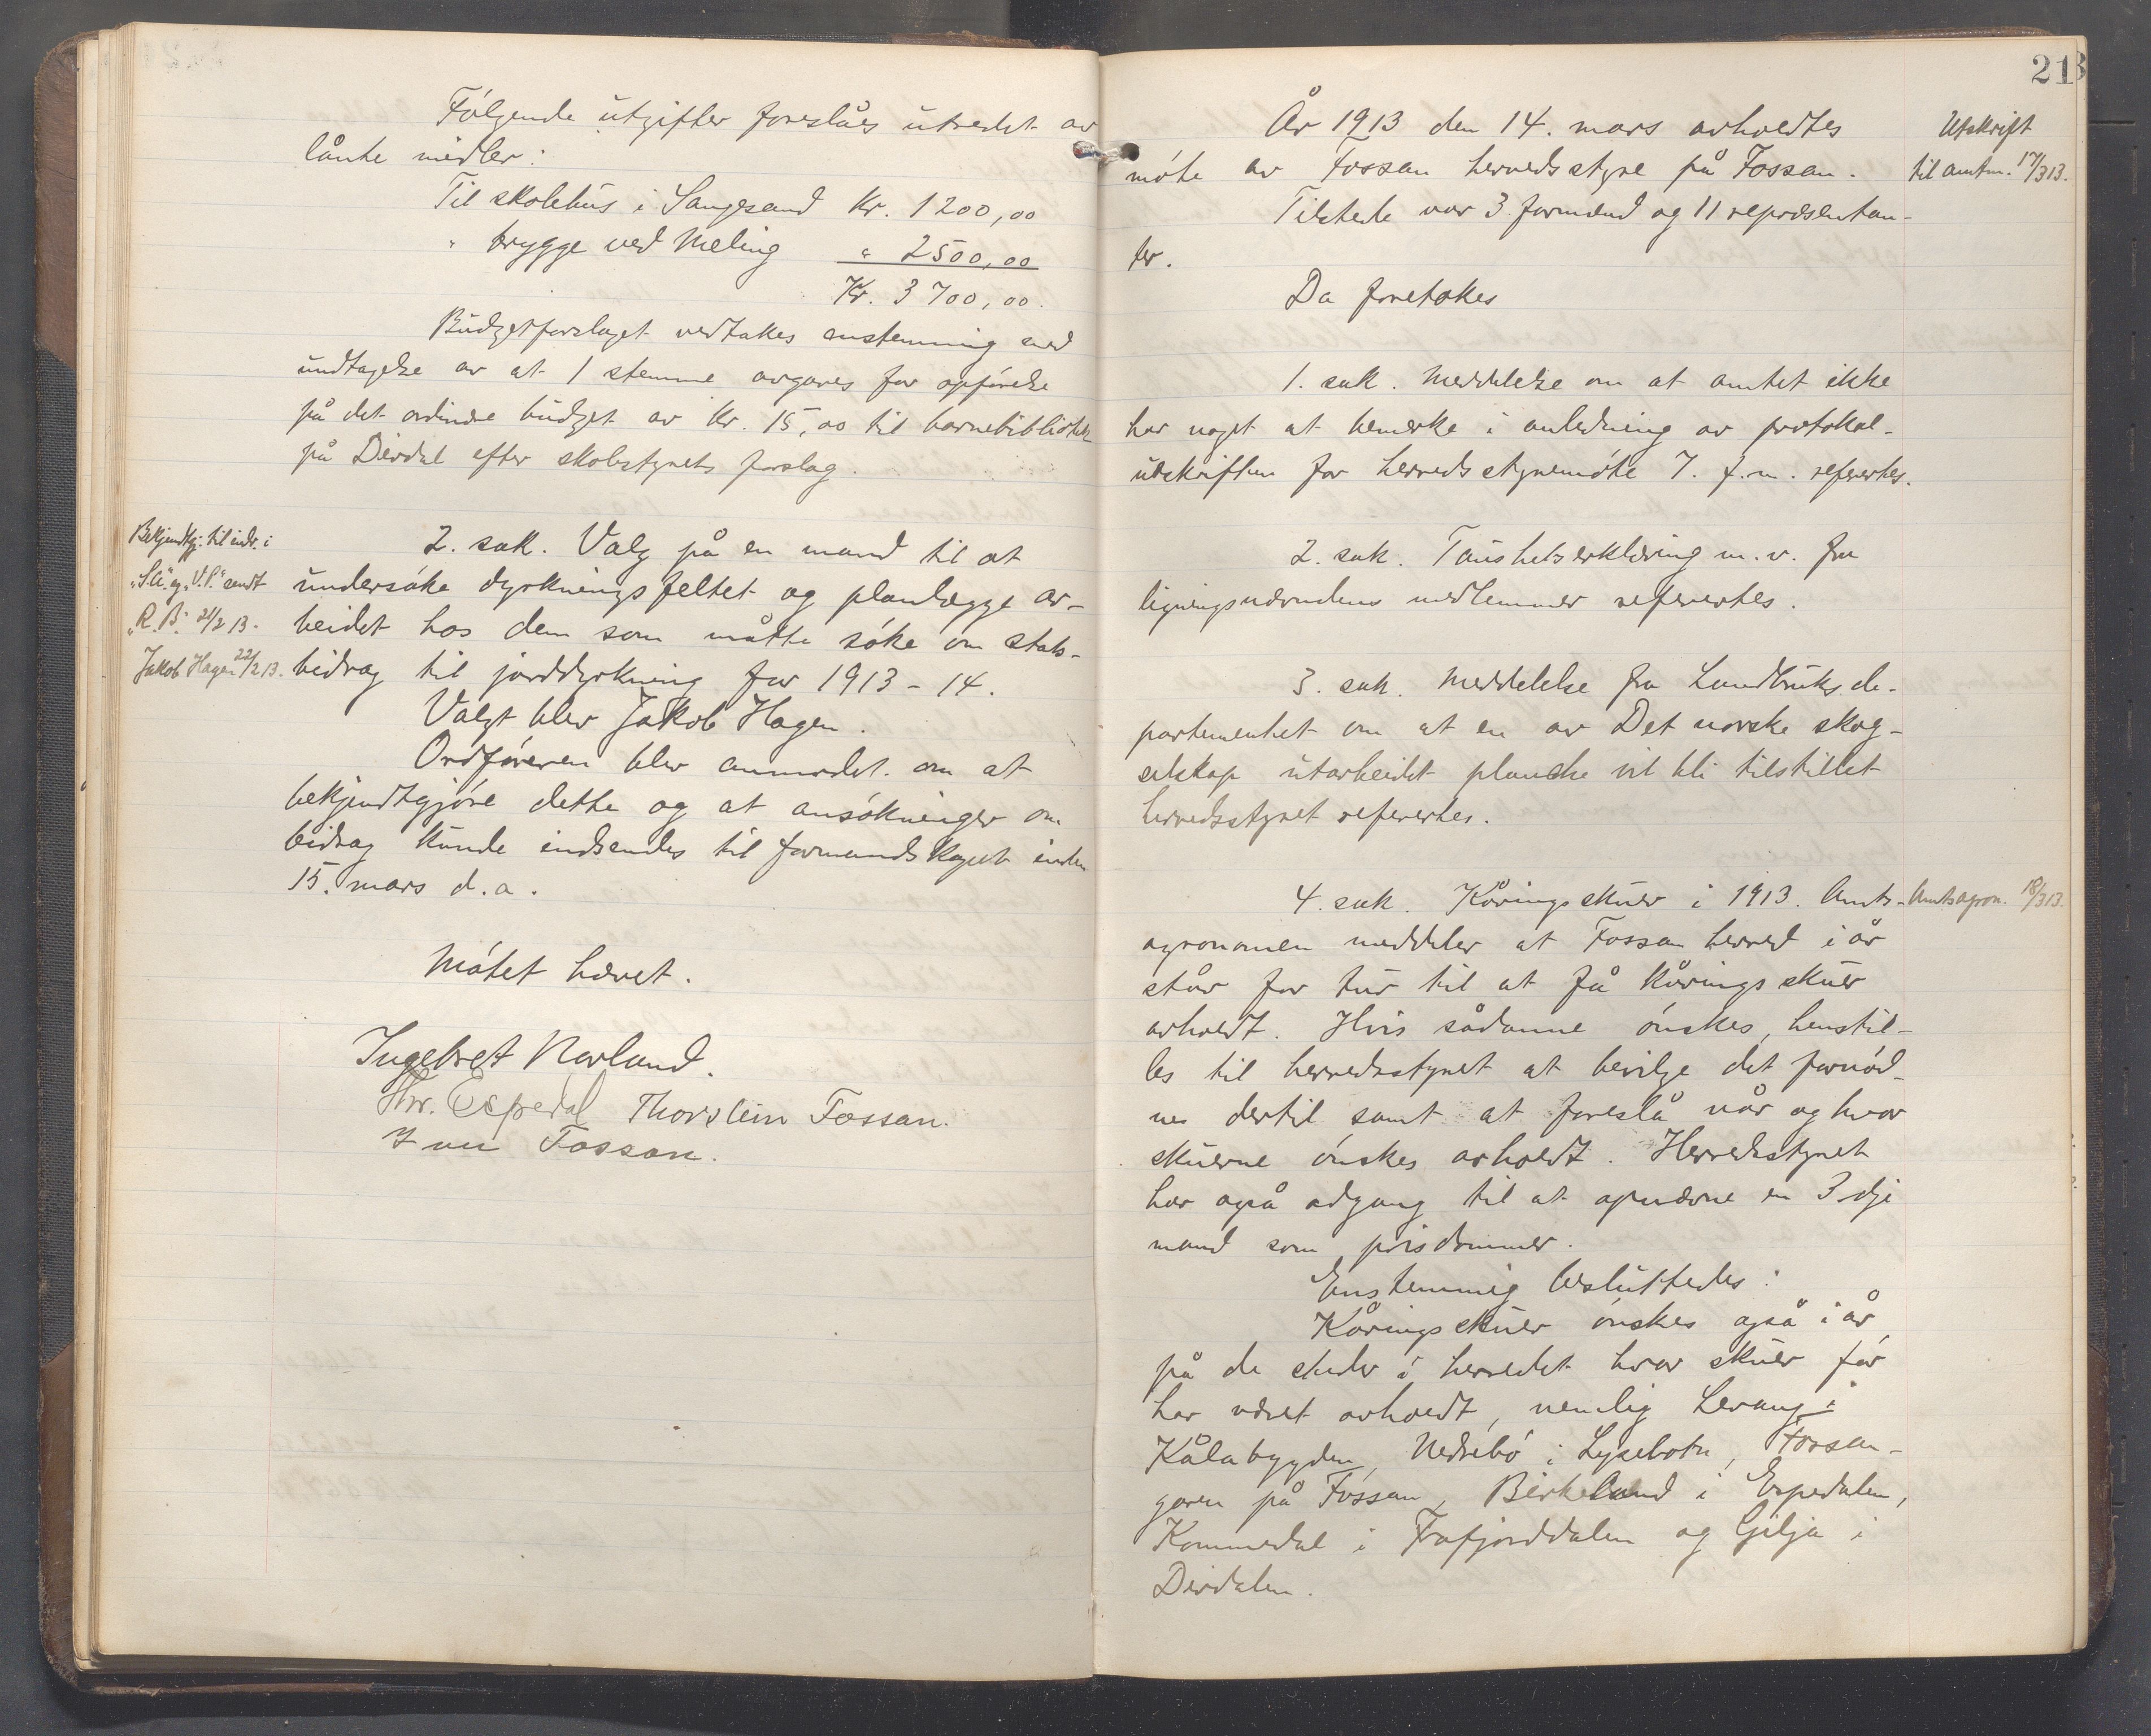 Følgende utgifter foreslåes utredet av
lånte midler:
Til skolehus i Sangesand Kr. 1200,00
" brygge ved Meling " 2500,00
Kr. 3700,00.
Budgetforslaget vedtakes enstemmig med
undtagelse av at 1 stemme avgaves for opførelse
på det ordinære budget av kr. 15,00 til barnebibliotek
på Dirdal efter skolestyrets forslag.
Bekjendtgj. til indr. i
"S.A." og "V.P." sendt
"R.B." 21/2 13.
Jakob Hagen 22/2 13.
2. sak. Valg på en mand til at
undersøke dyrkningsfeltet og planlægge ar-
beidet hos dem som måtte søke om stats-
bidrag til jorddyrkning for 1913-14.
Valgt blev Jakob Hagen.
Ordføreren blev anmodet om at
bekjendtgjøre dette og at ansøkninger om
bidrag kunde indsendes til formandskapet inden
15. mars d.a.
Møtet hævet.
Ingebret Norland.
Thr. Espedal Thorstein Fossan.
Fossan.
21
År 1913 den 14. mars avholdtes
møte av Fossan herredsstyre på Fossan.
Tilstede var 3 formænd og 11 repræsentan-
ter.
Utskrift
til amtm. 17/3 13.
Da foretokes
1. sak. Meddelelse om at amtet ikke
har noget at bemerke i anledning av protokol-
utskriften for herredsstyremøte 7. f.m. refertes.
2. sak. Taushetserklæring m.v. fra
ligningsnævndens medlemmer refertes.
3. sak. Meddelelse fra Landbruksde-
partementet om at en av Det norske skog-
selskap utarbeidet planche vil bli tilstillet
herredsstyret refertes.
4. sak. Kåringsskuer i 1913. Amts-
Amtsagron. 18/3 13.
agronomen meddeler at Fossan herred i år
står for tur til at få kåringsskuer
avholdt. Hvis sådanne ønskes, henstil-
les til herredsstyret at bevilge det fornød-
ne dertil samt at foreslå når og hvor
skuerne ønskes avholdt. Herredsstyret
har også adgang til at opnævne en 3dje
mand som prisdommer.
Enstemmig besluttedes:
Kåringsskuer ønskes også i år
på de steder i herredet hvor skuer før
har været avholdt, nemlig Levang i
Kålabygden, Nedrebø i Lysebotn, Fossan-
garen på Fossan, Birkeland i Espedalen,
Kommedal i Frafjorddalen og Gilja i
Dirdalen.